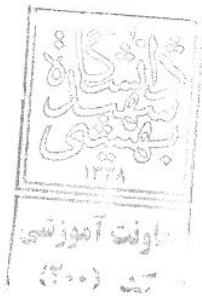 دانشگاه
شهید
بهشتی
۱۳۳۸
معاونت آموزشی
(۳۰۰)